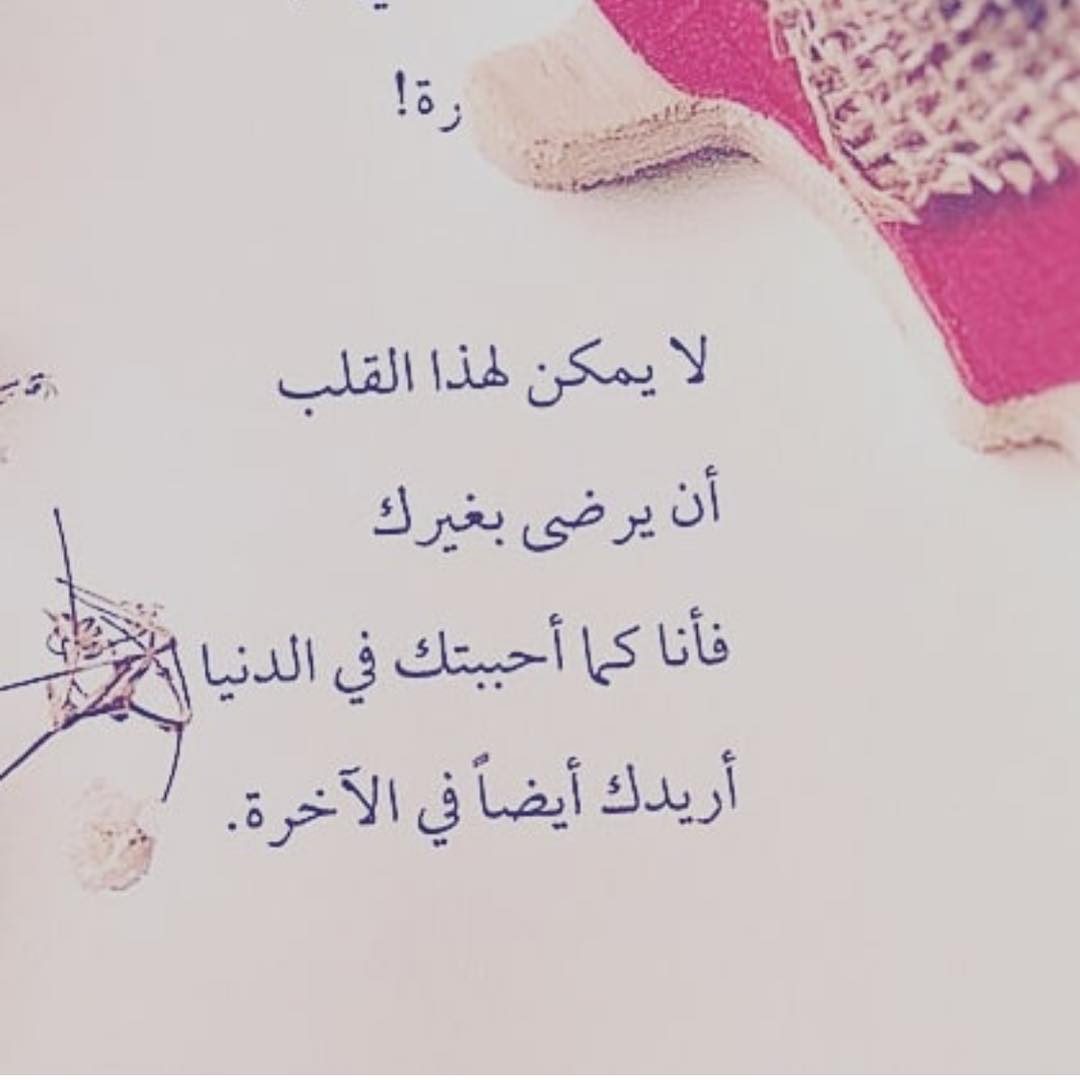 رة!
لا يمكن لهذا القلب
أن يرضى بغيرك
فأنا كما أحببتك في الدنيا
أريدك أيضاً في الآخرة.